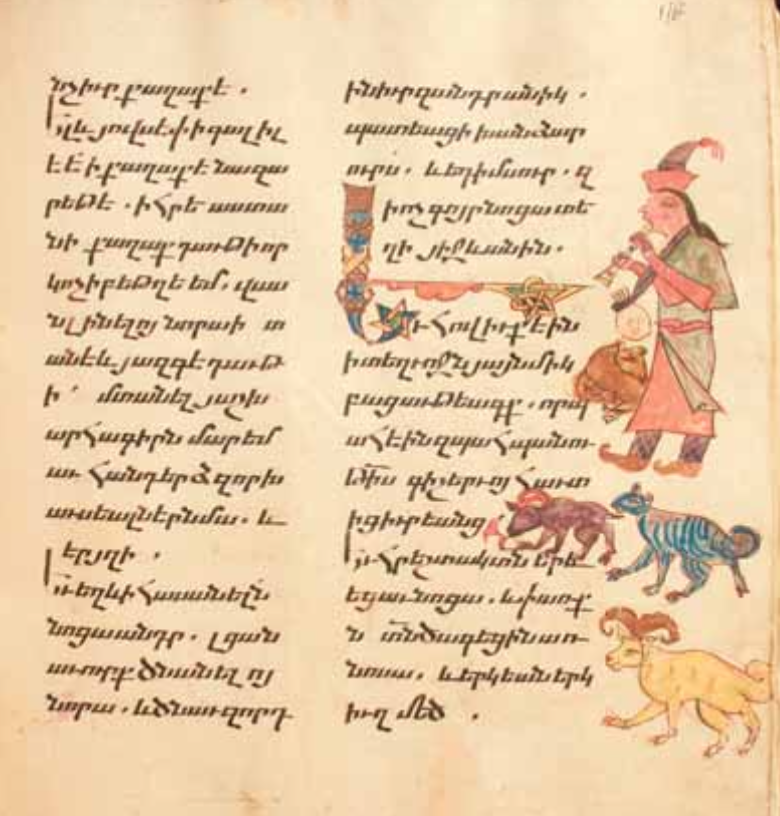 նչիւր քաղաքէ .
Ել և յովսէփ ի գալիլ
էէ ի քաղաքէ նազա
րեթէ . ի հրէաստա
նի քաղաք դաւթի որ
կոչի բեթղէեմ. վաս
ն լինելոյ նորա ի տ
անէ և յազգէ դաւթ
ի՝ մտանել յաշխ
արհագիրն մարեմ
աւ հանդերձ զոր խ
աւսեալն էր նմա. և
էր յղի .
Եւ եղև ի հասանելն
նոցա անդր . լցան
աւուրք ծնանելոյ
նորա . և ծնաւ զորդ
ին իւր զանդրանիկ .
պատեաց ի խանձար
ուրս . և եդ ի մսուր . զ
ի ոչ գոյր նոցա տե
ղի յիջևանին .
Եւ հովիւք էին
ի տեղւոջն յայնմիկ
բացաւթեագք . որպ
ահէին զպահպանու
թիս գիշերոյ հաւտ
ից իւրեանց
Եւ հրեշտակ տն երե
եցաւ նոցա . և փառք
ն տն ծագեցին առ
նոսա . և երկեան երկ
իւղ մեծ .